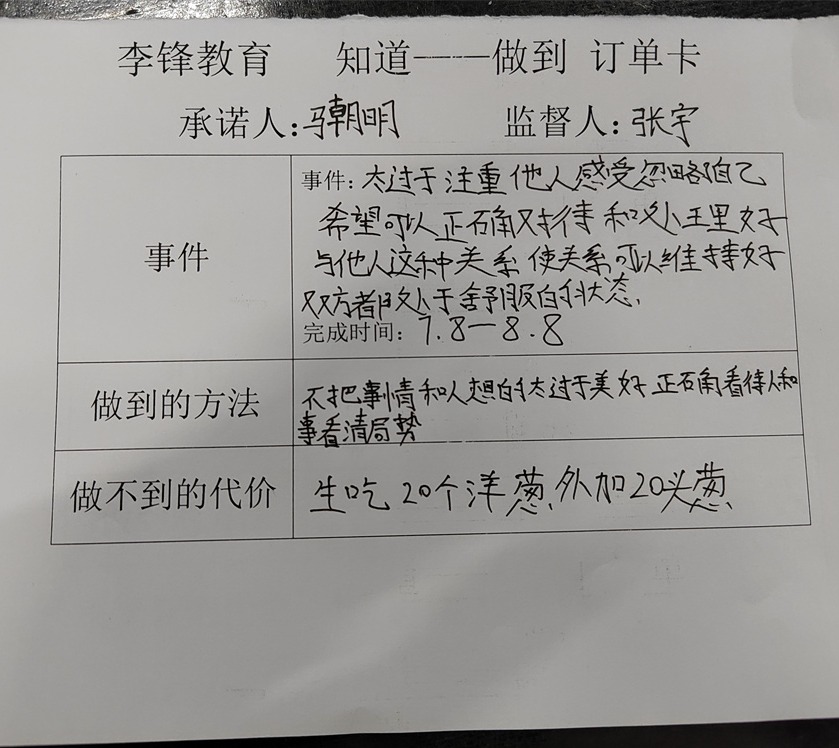 李锋教育 知道——做到 订单卡
承诺人:马朝明 监督人:张宇
事件
事件:太过于注重他人感受忽略自己
希望可以正确对待和处理好
与他人这种关系 使关系可以维持好
双方者都处于舒服的状态、
完成时间:7.8—8.8
做到的方法
不把事情和人想的太过于美好 正确看待人和
事看清局势
做不到的代价
生吃20个洋葱、外加20头葱、